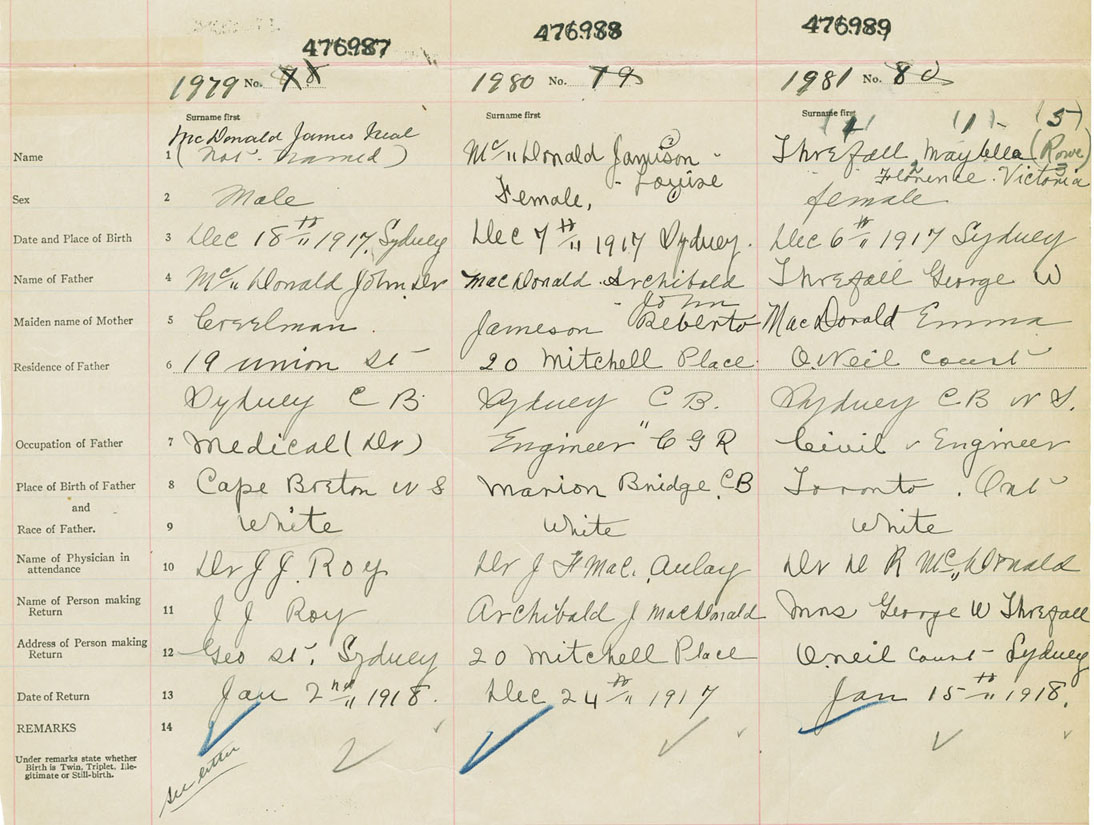 476987 476988 476989
1979 No. 1980 No. 79 1981 No. 80
Surname first Surname first Surname first
McDonald James Neal
Name 1 (Not named) Mc" Donald Jamison - Louise Threfall Maybella (Rowe)
Florence Victoria
Sex 2 Male Female, female
Date and Place of Birth 3 Dec 18th" 1917 Sydney Dec 7th" 1917 Sydney. Dec 6th" 1917 Sydney
Name of Father 4 Mc" Donald John Dr MacDonald Archibald - John Threfall George W
Maiden name of Mother 5 Jameson Roberto MacDonald Emma
Residence of Father 6 19 Union St 20 Mitchell Place O.Neil Court
Sydney C B. Sydney C B. Sydney C B N S.
Occupation of Father 7 Medical (Dr) Engineer " C G R Civil Engineer
Place of Birth of Father 8 Cape Breton N S Marion Bridge, CB Toronto. Ont
and
Race of Father. 9 White White White
Name of Physician in
attendance 10 Dr J J. Roy Dr J F Mac. Aulay Dr D R Mc" Donald
Name of Person making
Return 11 J J Roy Archibald J MacDonald Mrs George W Threfall
Address of Person making
Return 12 Geo St. Sydney 20 Mitchell Place O.neil Court - Sydney
Date of Return 13 Jan 2nd" 1918. Dec 24th" 1917 Jan 15th" 1918.
REMARKS 14
Under remarks state whether
Birth is Twin, Triplet, Ille-
gitimate or Still-birth.
see letter